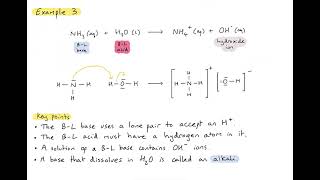 Example 3
NH₃ (aq) + H₂O (l) → NH₄⁺ (aq) + OH⁻ (aq)
B-L base B-L acid hydroxide ion
H–N–H H–O–H → [H–N–H]⁺ [O–H]⁻
H H H
Key points:
• The B-L base uses a lone pair to accept an H⁺.
• The B-L acid must have a hydrogen atom in it.
• A solution of a B-L base contains OH⁻ ions.
• A base that dissolves in H₂O is called an alkali.